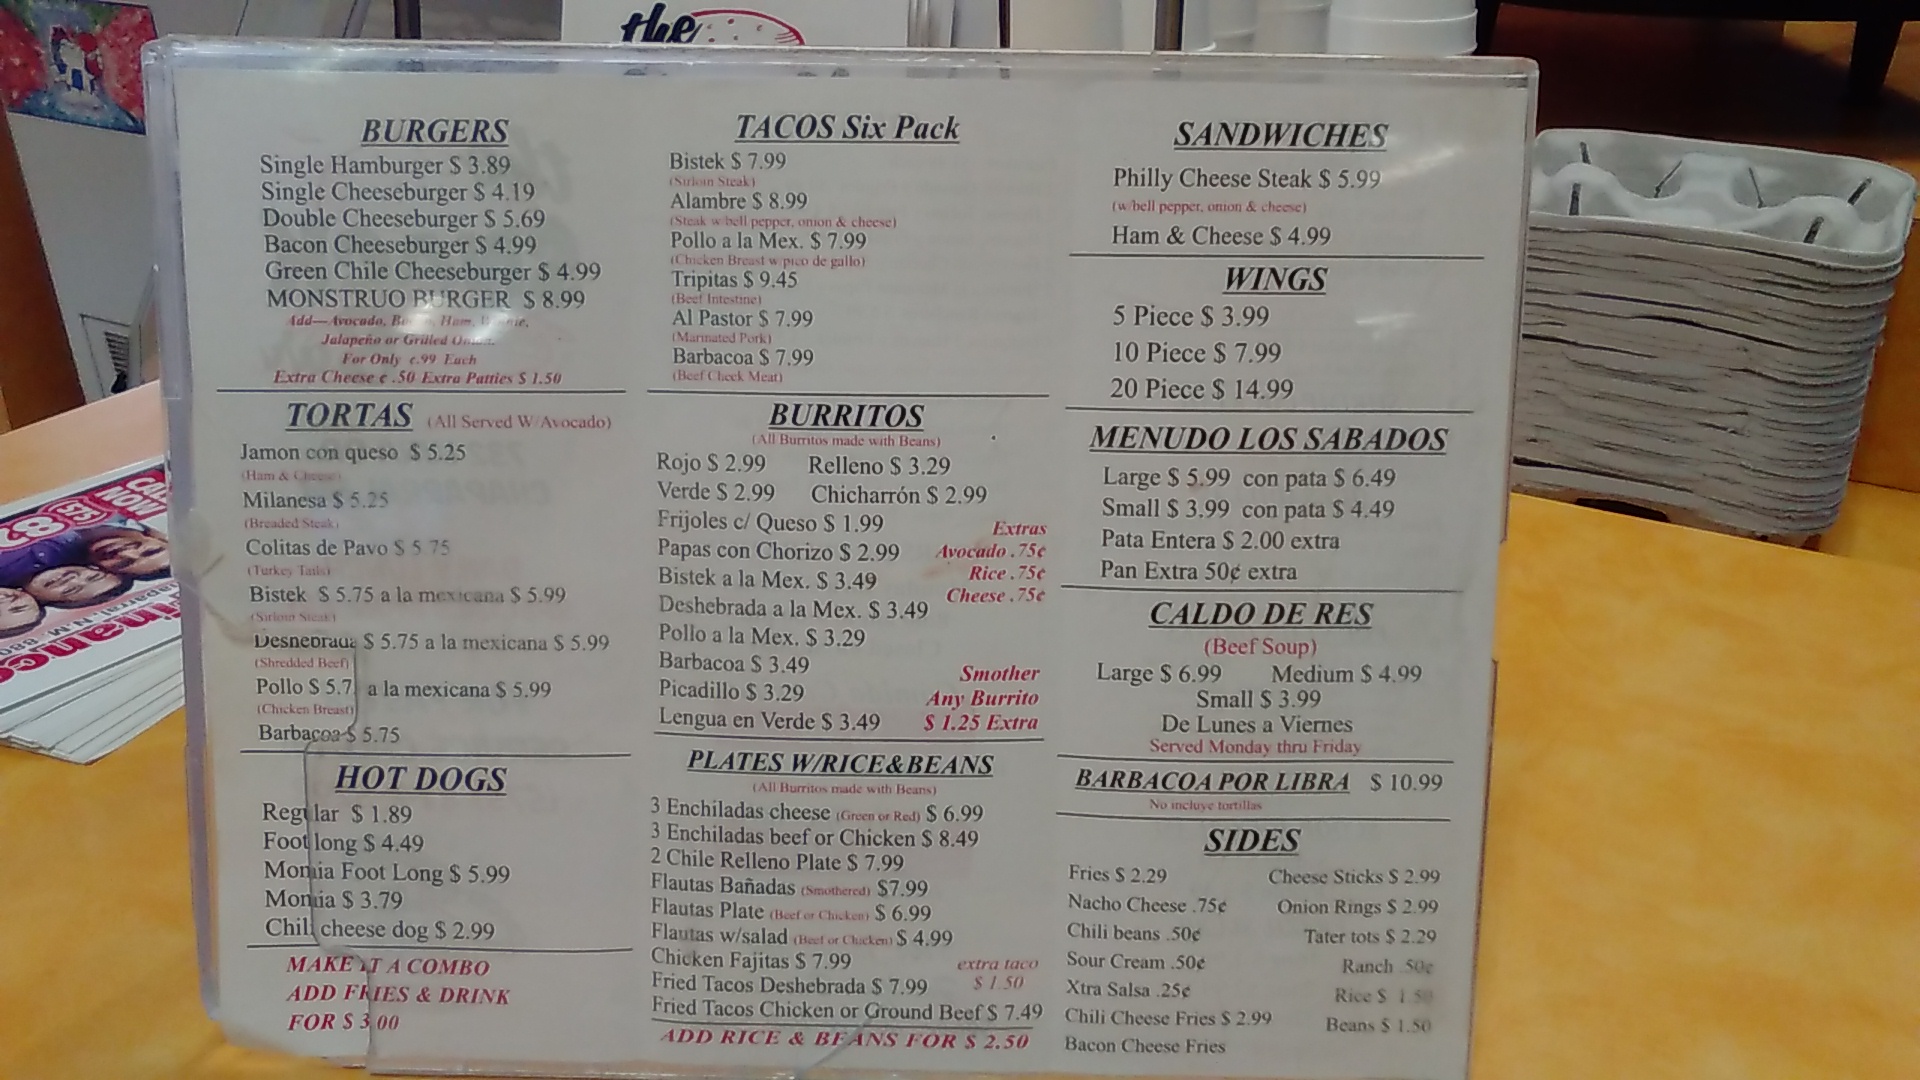 the
BURGERS
Single Hamburger $ 3.89
Single Cheeseburger $ 4.19
Double Cheeseburger $ 5.69
Bacon Cheeseburger $ 4.99
Green Chile Cheeseburger $ 4.99
MONSTRUO BURGER $ 8.99
Add—Avocado, Ham,
Jalapeño or Grilled
For Only ¢.99 Each
Extra Cheese ¢ .50 Extra Patties $ 1.50
TORTAS (All Served W/Avocado)
Jamon con queso $ 5.25
(Ham & Cheese)
Milanesa $ 5.25
(Breaded Steak)
Colitas de Pavo $ 5.75
(Turkey Tails)
Bistek $ 5.75 a la mexicana $ 5.99
(Sirloin Steak)
Deshebrada $ 5.75 a la mexicana $ 5.99
(Shredded Beef)
Pollo $ 5.7 a la mexicana $ 5.99
(Chicken Breast)
Barbacoa $ 5.75
HOT DOGS
Regular $ 1.89
Foot long $ 4.49
Momia Foot Long $ 5.99
Momia $ 3.79
Chili cheese dog $ 2.99
MAKE IT A COMBO
ADD FRIES & DRINK
FOR $ 3.00
TACOS Six Pack
Bistek $ 7.99
(Sirloin Steak)
Alambre $ 8.99
(Steak w/bell pepper, onion & cheese)
Pollo a la Mex. $ 7.99
(Chicken Breast w/pico de gallo)
Tripitas $ 9.45
(Beef Intestine)
Al Pastor $ 7.99
(Marinated Pork)
Barbacoa $ 7.99
(Beef Cheek Meat)
BURRITOS
(All Burritos made with Beans)
Rojo $ 2.99 Relleno $ 3.29
Verde $ 2.99 Chicharrón $ 2.99
Frijoles c/ Queso $ 1.99
Papas con Chorizo $ 2.99
Bistek a la Mex. $ 3.49
Deshebrada a la Mex. $ 3.49
Pollo a la Mex. $ 3.29
Barbacoa $ 3.49
Picadillo $ 3.29
Lengua en Verde $ 3.49
Extras
Avocado .75¢
Rice .75¢
Cheese .75¢
Smother
Any Burrito
$ 1.25 Extra
PLATES W/RICE&BEANS
(All Burritos made with Beans)
3 Enchiladas cheese (Green or Red) $ 6.99
3 Enchiladas beef or Chicken $ 8.49
2 Chile Relleno Plate $ 7.99
Flautas Bañadas (Smothered) $7.99
Flautas Plate (Beef or Chicken) $ 6.99
Flautas w/salad (Beef or Chicken) $ 4.99
Chicken Fajitas $ 7.99
Fried Tacos Deshebrada $ 7.99
extra taco
$ 1.50
Fried Tacos Chicken or Ground Beef $ 7.49
ADD RICE & BEANS FOR $ 2.50
SANDWICHES
Philly Cheese Steak $ 5.99
(w/bell pepper, onion & cheese)
Ham & Cheese $ 4.99
WINGS
5 Piece $ 3.99
10 Piece $ 7.99
20 Piece $ 14.99
MENUDO LOS SABADOS
Large $ 5.99 con pata $ 6.49
Small $ 3.99 con pata $ 4.49
Pata Entera $ 2.00 extra
Pan Extra 50¢ extra
CALDO DE RES
(Beef Soup)
Large $ 6.99 Medium $ 4.99
Small $ 3.99
De Lunes a Viernes
Served Monday thru Friday
BARBACOA POR LIBRA $ 10.99
No incluye tortillas
SIDES
Fries $ 2.29 Cheese Sticks $ 2.99
Nacho Cheese .75¢ Onion Rings $ 2.99
Chili beans .50¢ Tater tots $ 2.29
Sour Cream .50¢ Ranch .50¢
Xtra Salsa .25¢ Rice $ 1.50
Chili Cheese Fries $ 2.99 Beans $ 1.50
Bacon Cheese Fries